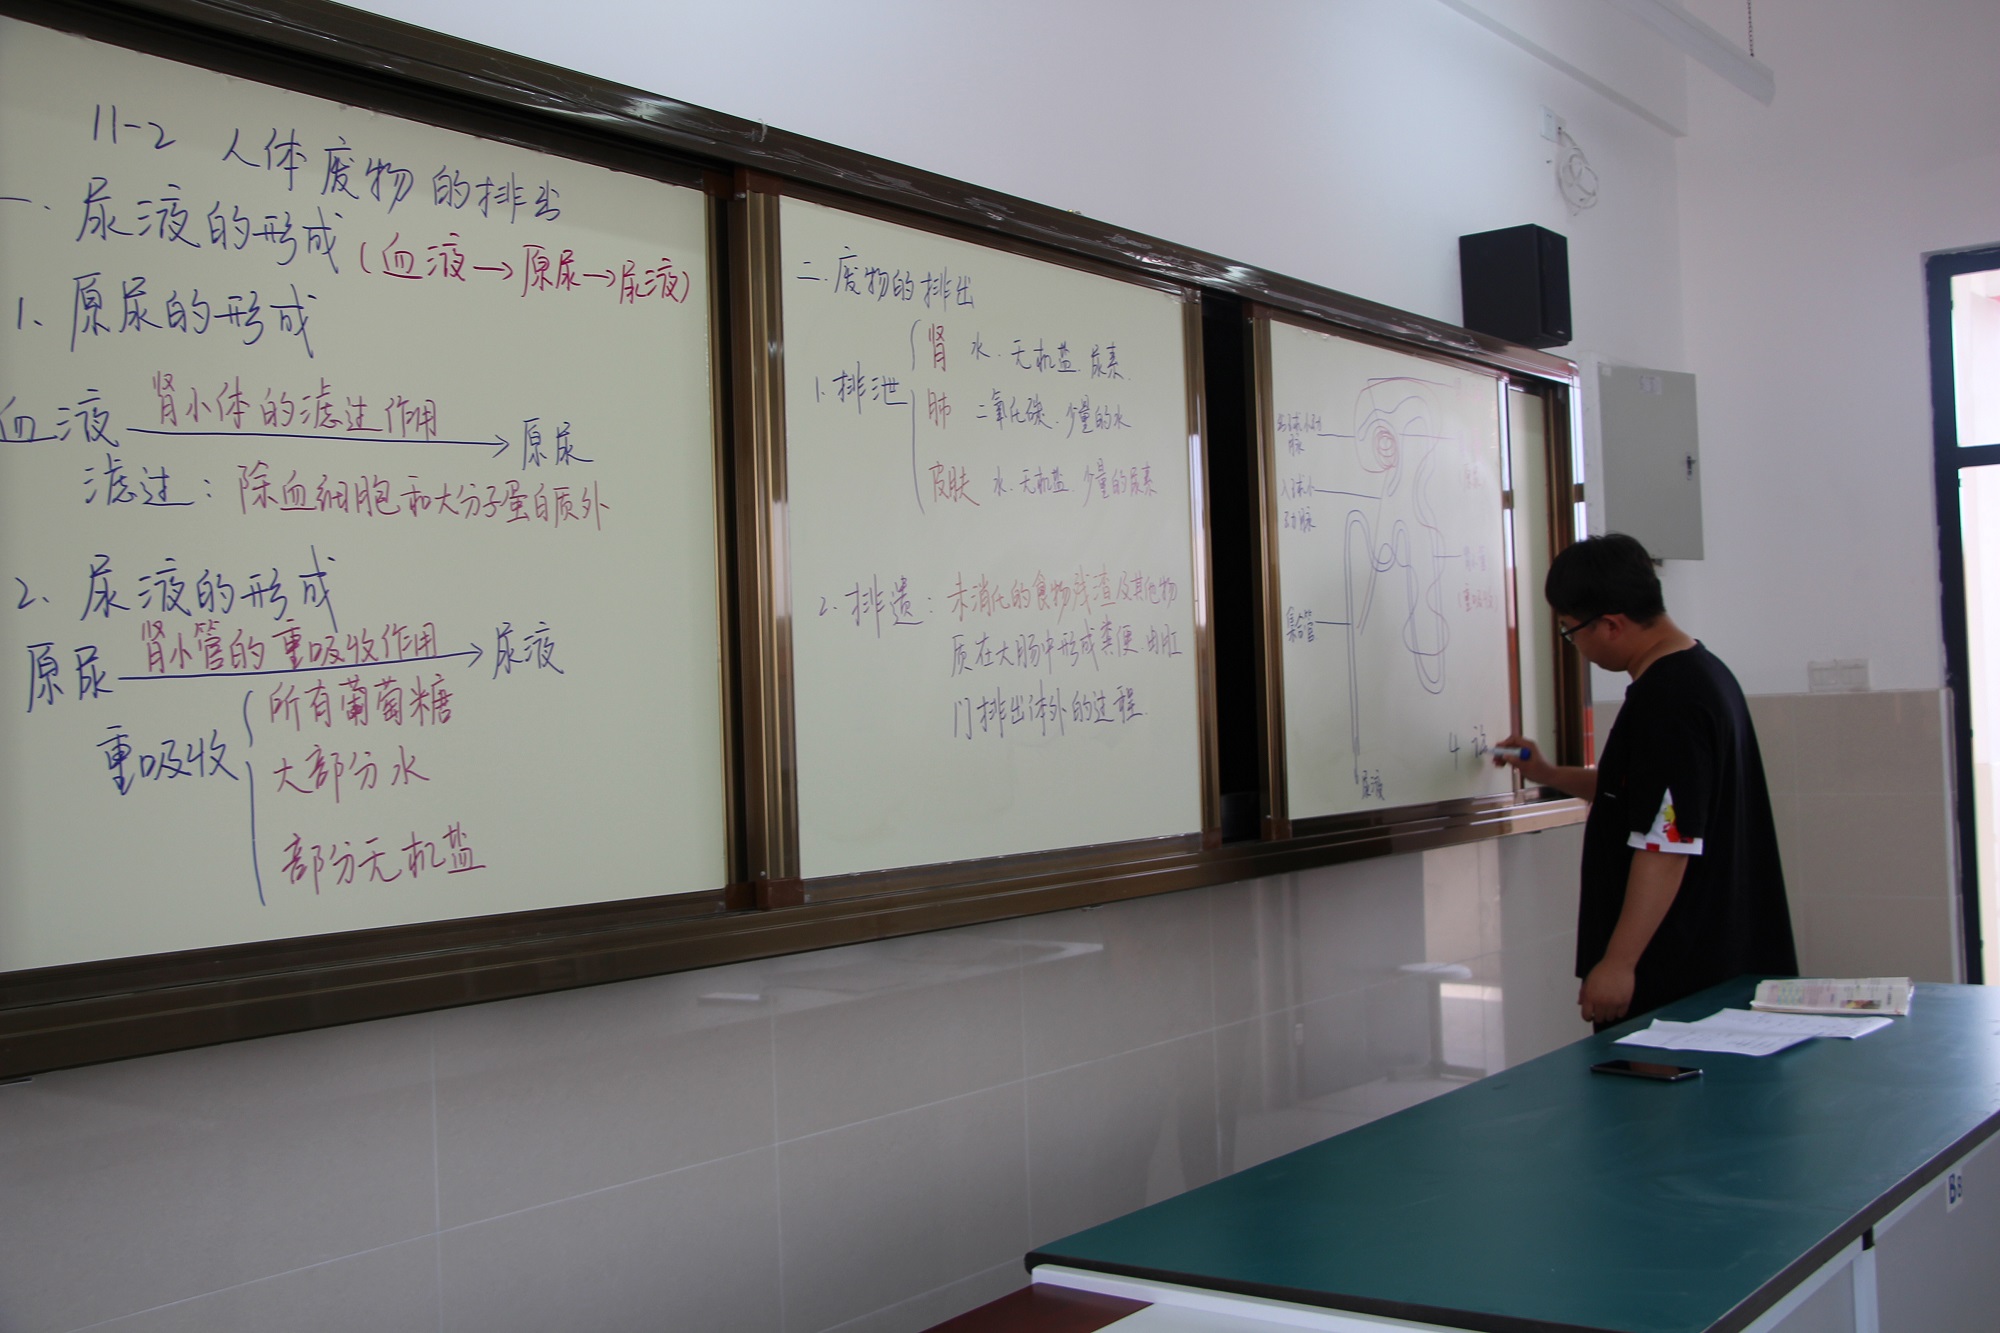 11-2 人体废物的排出
一. 尿液的形成 (血液→原尿→尿液)
1. 原尿的形成
血液 肾小体的滤过作用 → 原尿
滤过: 除血细胞和大分子蛋白质外
2. 尿液的形成
原尿 肾小管的重吸收作用 → 尿液
重吸收
所有葡萄糖
大部分水
部分无机盐
二. 废物的排出
1. 排泄
肾 水. 无机盐. 尿素.
肺 二氧化碳. 少量的水
皮肤 水. 无机盐. 少量的尿素
2. 排遗: 未消化的食物残渣及其他物
质在大肠中形成粪便. 由肛
门排出体外的过程.
出球小动
脉
入球小
动脉
肾小管
(重吸收)
集合管
尿液
4
B8